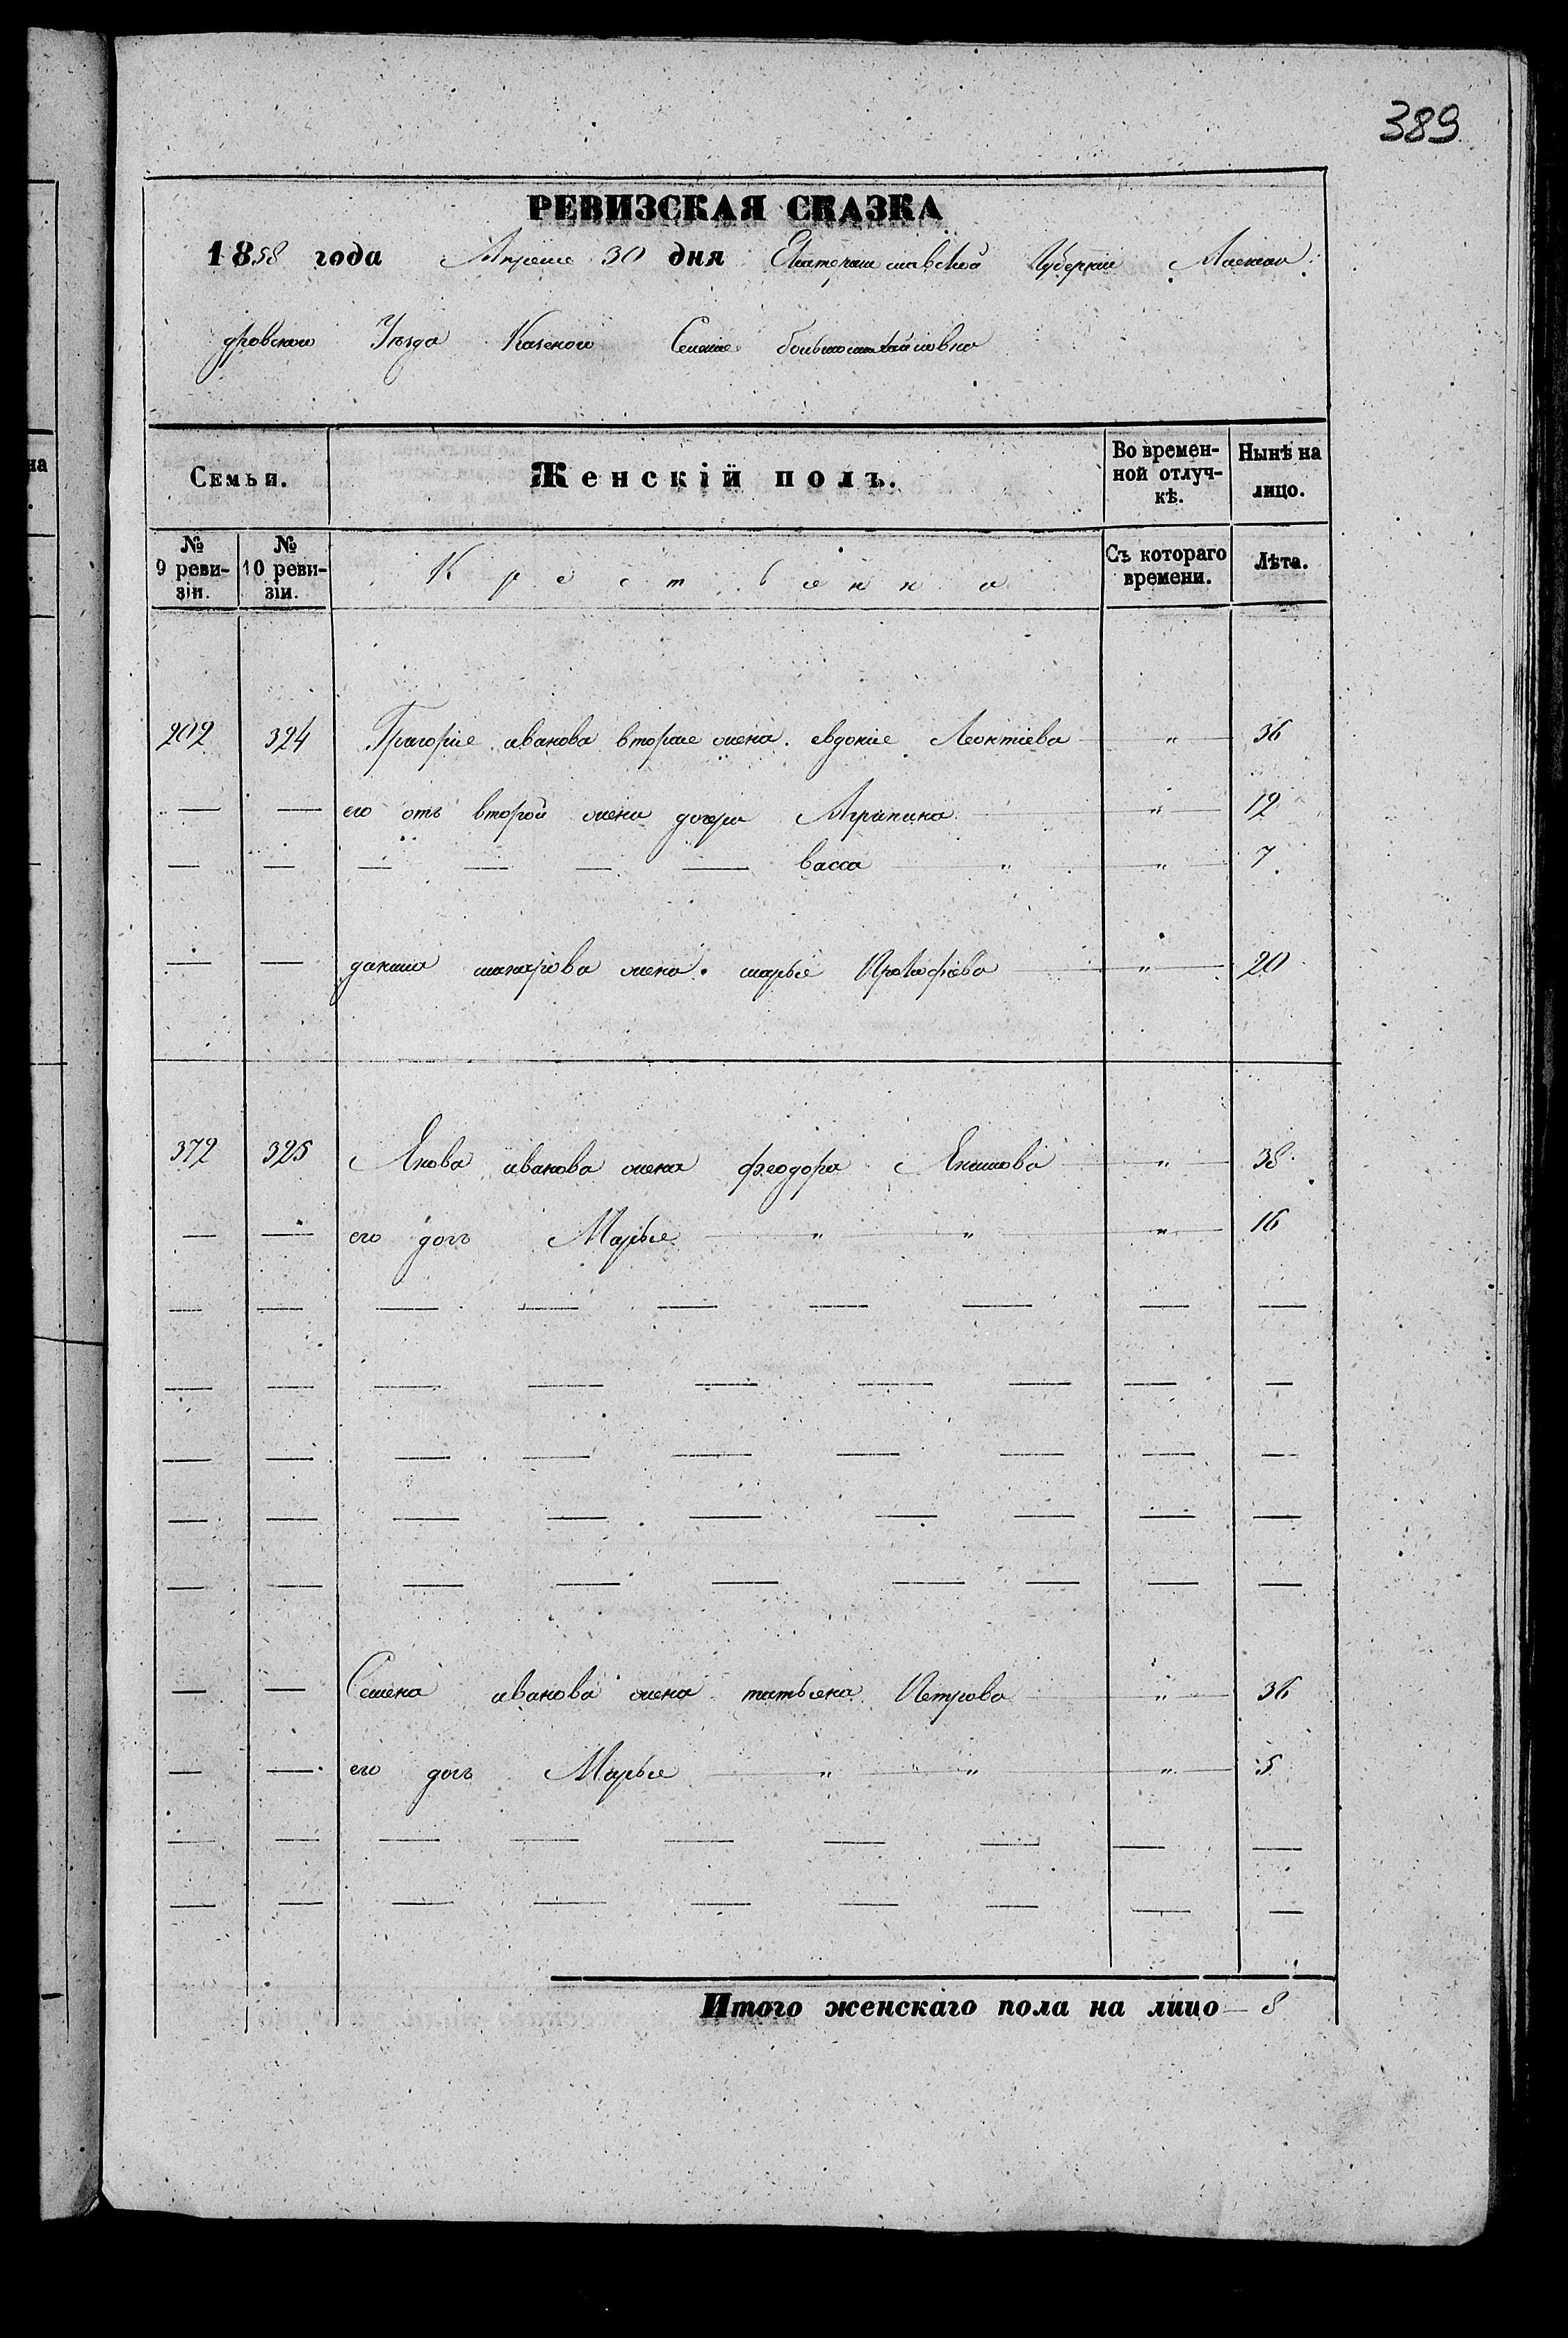 389
РЕВИЗСКАЯ СКАЗКА
1858 года Апреле 30 дня Екатеринославской Губернии Алексан
дровского Уезда Казеного Селение большомихайловка
на
Семьи. Женскій полъ. Во времен-ной отлуч-кѣ. Нынѣ на лицо.
№ 9 реви-зіи. № 10 реви-зіи. Крественка Съ котораго времени. Лѣта.
202 324 Григорие иванова вторае жена. евдокие Леонтиева " 36
— — его отъ второй жени дочери Агрипина " 12
— — — — — — васса " " 7
— — жена. марье Прокофиева " 20
372 325 Якова иванова жена феодора Екимова " 38
— — его дочъ Марье " " " 16
— — — — — — — — —
— — — — — — — — —
— — — — — — — — —
— — — — — — — — —
— — — — — — — — —
— — Семена иванова жена татьена Петрова " 36
— — его дочъ Марье " " " 5
— — — — — — — — —
— — — — — — — — —
Итого женскаго пола на лицо — 8